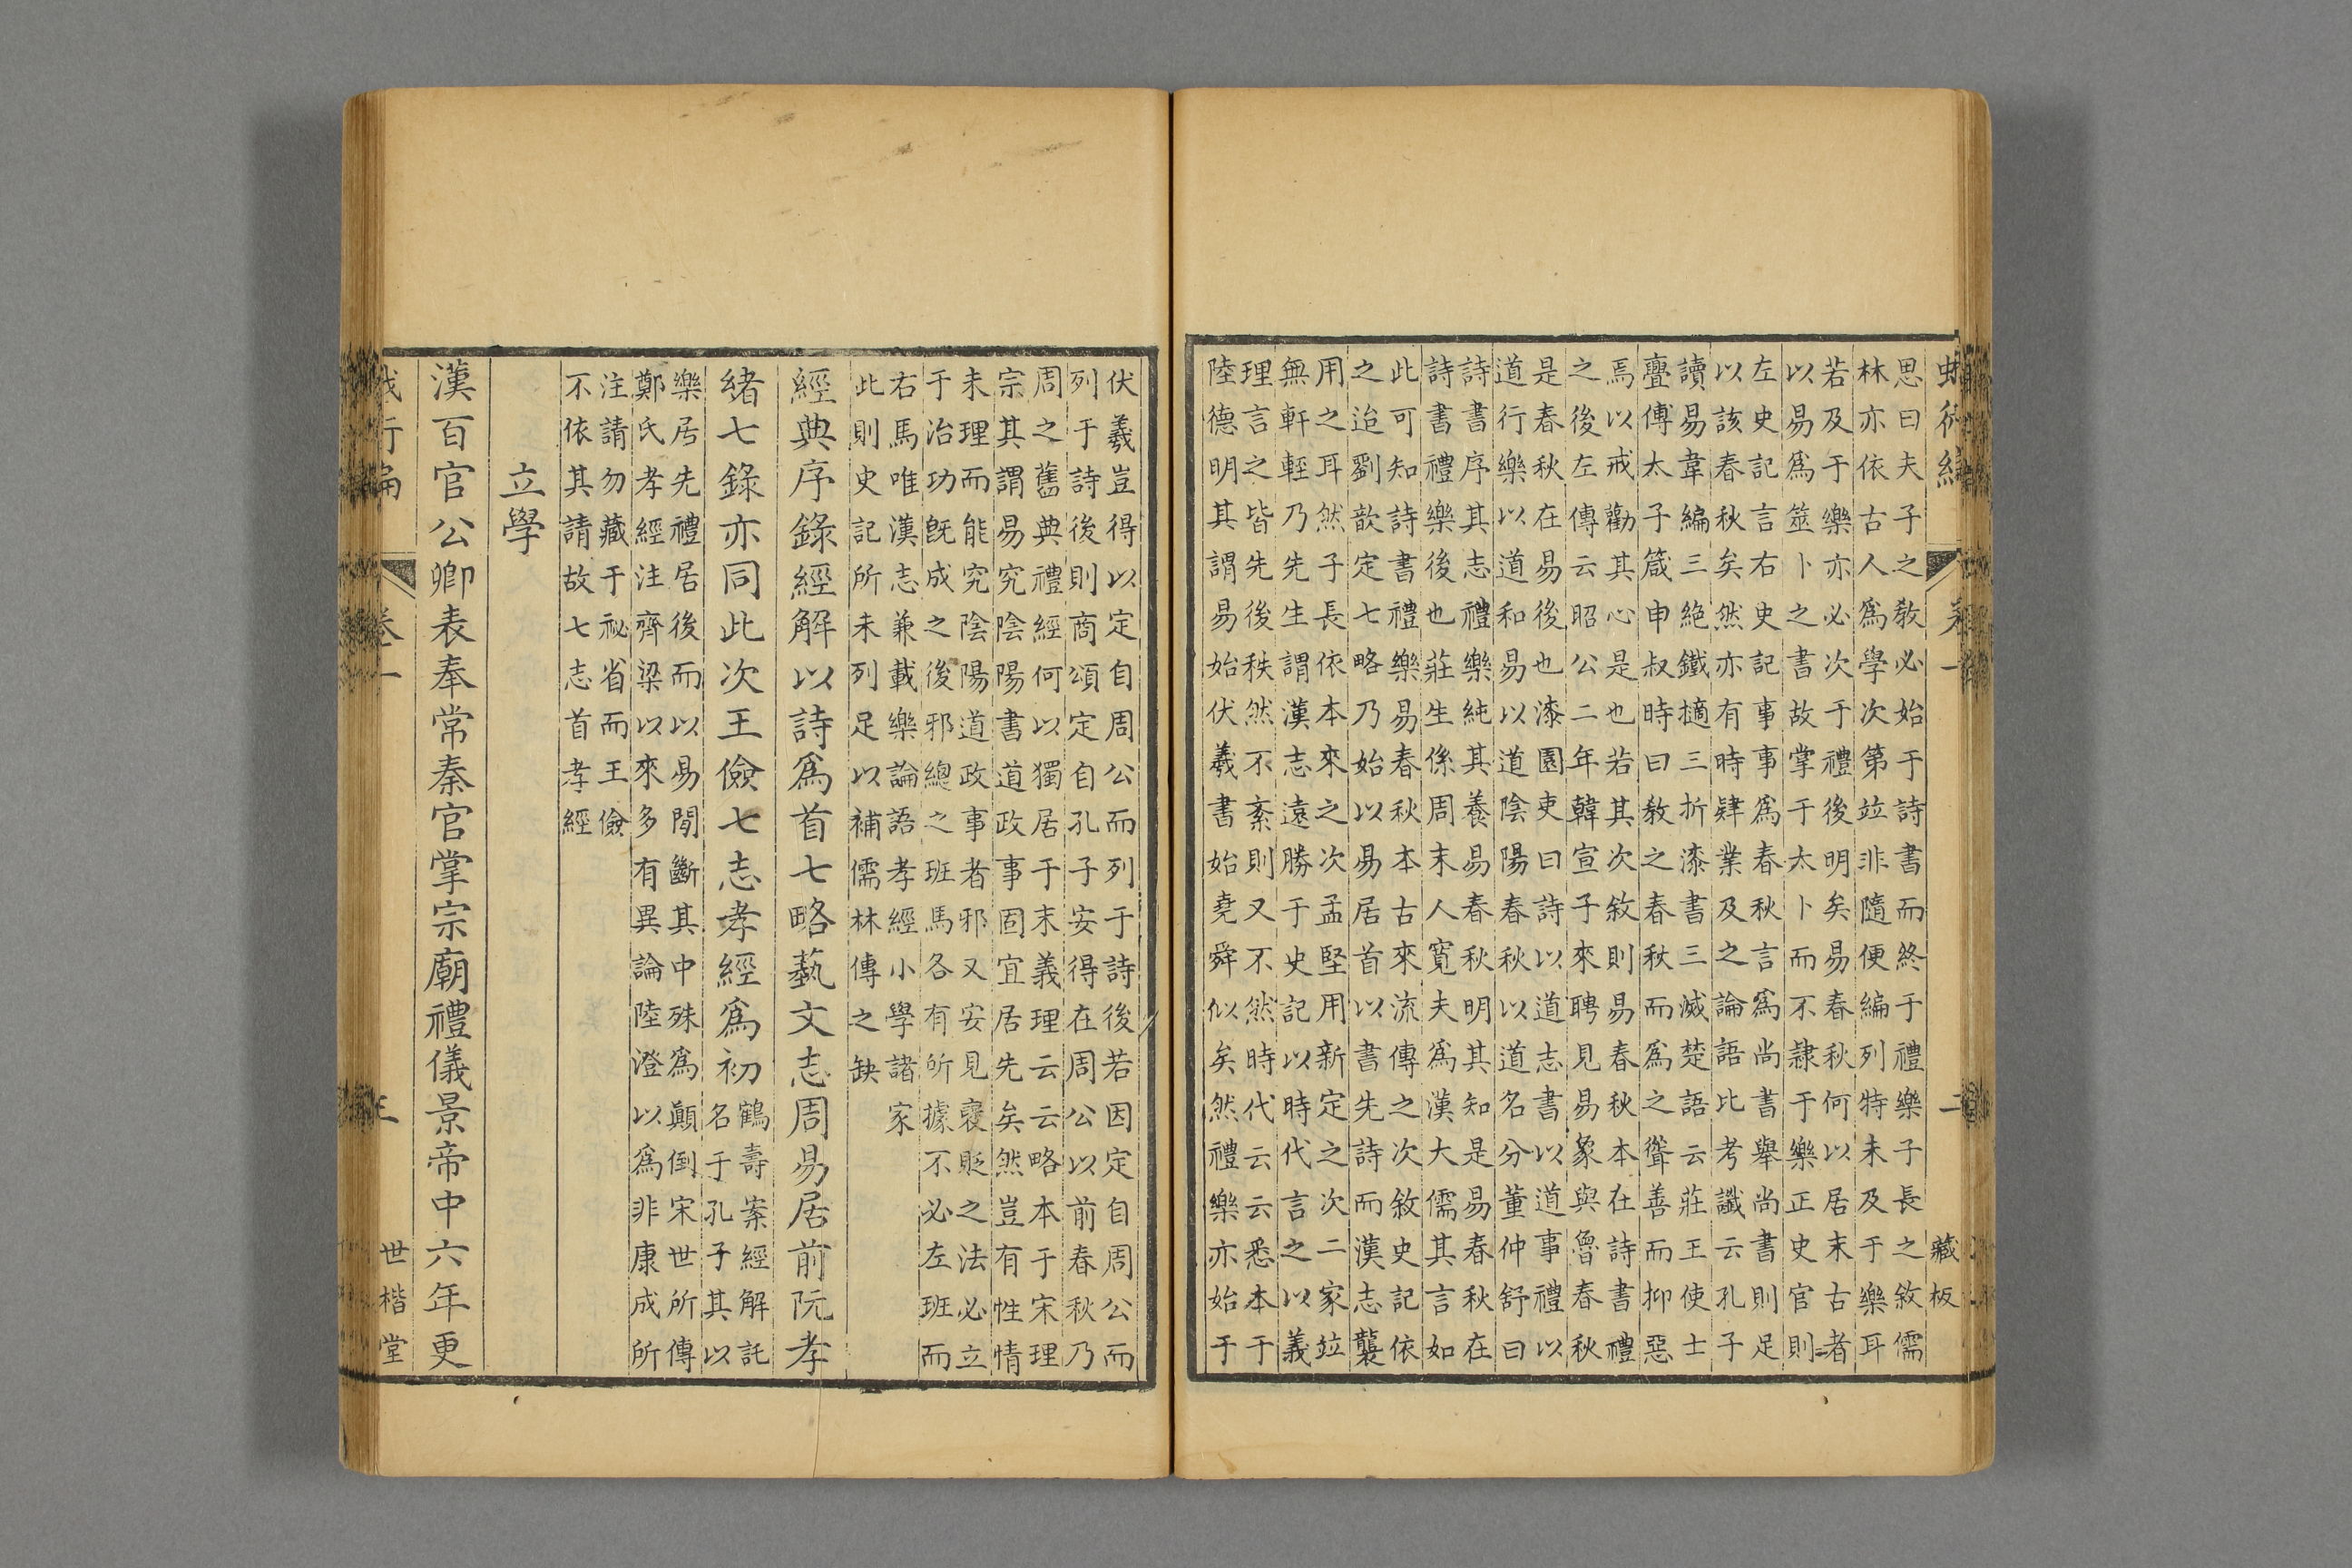 藏板
思曰夫子之敎必始于詩書而終于禮樂子長之敘儒
林亦依古人爲學次第竝非隨便編列特未及于樂耳
若及于樂亦必次于禮後明矣易春秋何以居末古者
以易爲筮卜之書故掌于太卜而不隷于樂正史官則
左史記言右史記事事爲春秋言爲尚書舉尚書則足
以該春秋矣然亦有時肄業及之論語比考讖云孔子
讀易韋編三絕鐵擿三折漆書三滅楚語云莊王使士
亹傅太子箴申叔時曰敎之春秋而爲之聳善而抑惡
焉以戒勸其心是也若其次敘則易春秋本在詩書禮
之後左傳云昭公二年韓宣子來聘見易象與魯春秋
是春秋在易後也漆園吏曰詩以道志書以道事禮以
道行樂以道和易以道陰陽春秋以道名分董仲舒曰
詩書序其志禮樂純其養易春秋明其知是易春秋在
詩書禮樂後也莊生係周末人寬夫爲漢大儒其言如
此可知詩書禮樂易春秋本古來流傳之次敘史記依
之迨劉歆定七略乃始以易居首以書先詩而漢志襲
用之耳然子長依本來之次孟堅用新定之次二家竝
無軒輊乃先生謂漢志遠勝于史記以時代言之以義
理言之皆先後秩然不紊則又不然時代云云悉本于
陸德明其謂易始伏羲書始堯舜似矣然禮樂亦始于
伏羲豈得以定自周公而列于詩後若因定自周公而
列于詩後則商頌定自孔子安得在周公以前春秋乃
周之舊典禮經何以獨居于末義理云云略本于宋理
宗其謂易究陰陽書道政事固宜居先矣然豈有性情
未理而能究陰陽道政事者邪又安見襃貶之法必立
于治功旣成之後邪總之班馬各有所據不必左班而
右馬唯漢志兼載樂論語孝經小學諸家
此則史記所未列足以補儒林傳之缺
經典序錄經解以詩爲首七略藝文志周易居前阮孝
緒七錄亦同此次王儉七志孝經爲初
鶴壽案經解託
名于孔子其以
樂居先禮居後而以易間斷其中殊爲顚倒宋世所傳
鄭氏孝經注齊梁以來多有異論陸澄以爲非康成所
注請勿藏于祕省而王儉
不依其請故七志首孝經
立學
漢百官公卿表奉常秦官掌宗廟禮儀景帝中六年更
卷一
世楷堂